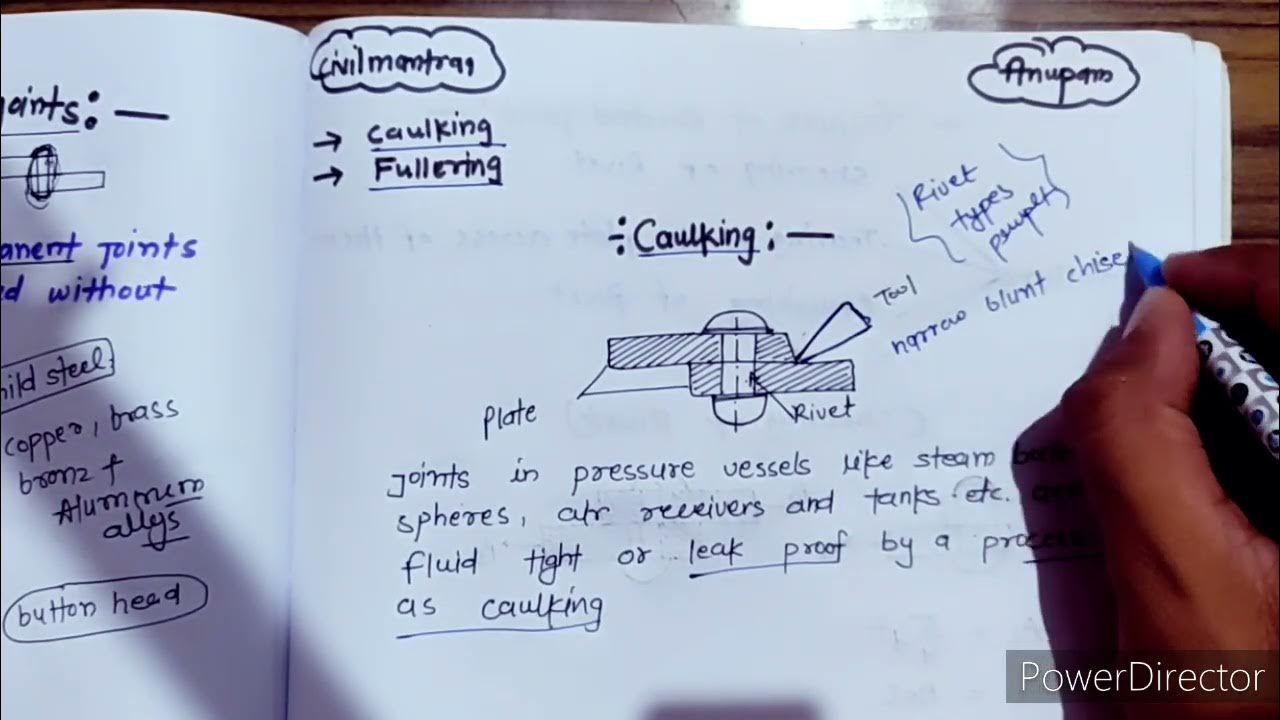 oints : —
anent joints
ed without
mild steel
copper, brass
bronz +
Aluminum
allys
button head
Civilmantraa
Anupam
→ Caulking
→ Fullering
÷ Caulking : —
Rivet
types
Tool
narrow blunt chise
plate
Rivet
Joints in pressure vessels like steam
spheres, air receivers and tanks etc.
fluid tight or leak proof by a process
as caulking
PowerDirector